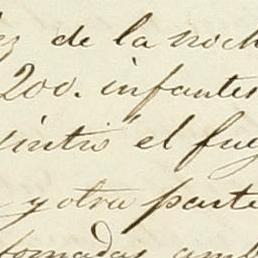 de la noch
200. infantes
sintió el fueg
y otra parte
tomadas amb